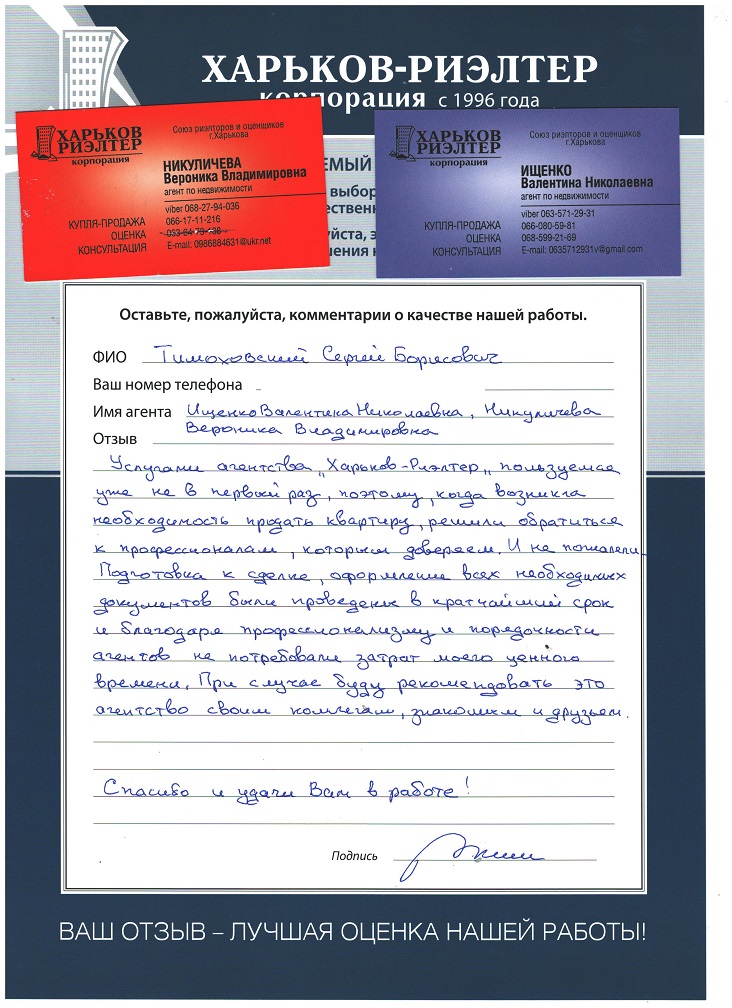 ХАРЬКОВ-РИЭЛТЕР
корпорация с 1996 года
ХАРЬКОВ
РИЭЛТЕР
корпорация
Союз риэлторов и оценщиков
г.Харькова
НИКУЛИЧЕВА
Вероника Владимировна
агент по недвижимости
viber 068-27-94-036
КУПЛЯ-ПРОДАЖА 066-17-11-216
ОЦЕНКА
КОНСУЛЬТАЦИЯ E-mail: 0986884631@ukr.net
ХАРЬКОВ
РИЭЛТЕР
корпорация
Союз риэлторов и оценщиков
г.Харькова
ИЩЕНКО
Валентина Николаевна
агент по недвижимости
viber 063-571-29-31
КУПЛЯ-ПРОДАЖА 066-080-59-81
ОЦЕНКА 068-599-21-69
КОНСУЛЬТАЦИЯ E-mail: 0635712931v@gmail.com
ЕМЫЙ
выбор
ественн
йста, з
ения н
Оставьте, пожалуйста, комментарии о качестве нашей работы.
ФИО Тимоховский Сергей Борисович
Ваш номер телефона
Имя агента Ищенко Валентина Николаевна, Никуличева
Вероника Владимировна
Отзыв
Услугами агентства „Харьков-Риэлтер„ пользуемся
уже не в первый раз, поэтому, когда возникла
необходимость продать квартиру, решили обратиться
к профессионалам, которым доверяем. И не пожалели.
Подготовка к сделке, оформление всех необходимых
документов были проведены в кратчайший срок
и благодаря профессионализму и порядочности
агентов не потребовали затрат моего ценного
времени. При случае буду рекомендовать это
агентство своим коллегам, знакомым и друзьям.
Спасибо и удачи Вам в работе!
Подпись
ВАШ ОТЗЫВ – ЛУЧШАЯ ОЦЕНКА НАШЕЙ РАБОТЫ!